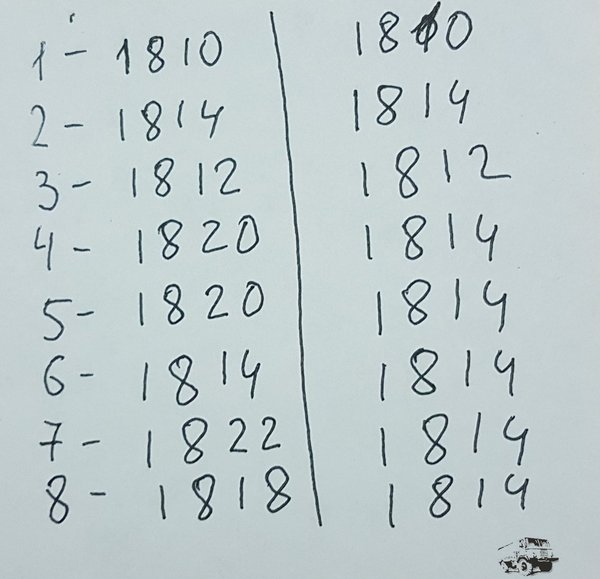 1 - 1810 1810
2 - 1814 1814
3 - 1812 1812
4 - 1820 1814
5 - 1820 1814
6 - 1814 1814
7 - 1822 1814
8 - 1818 1814